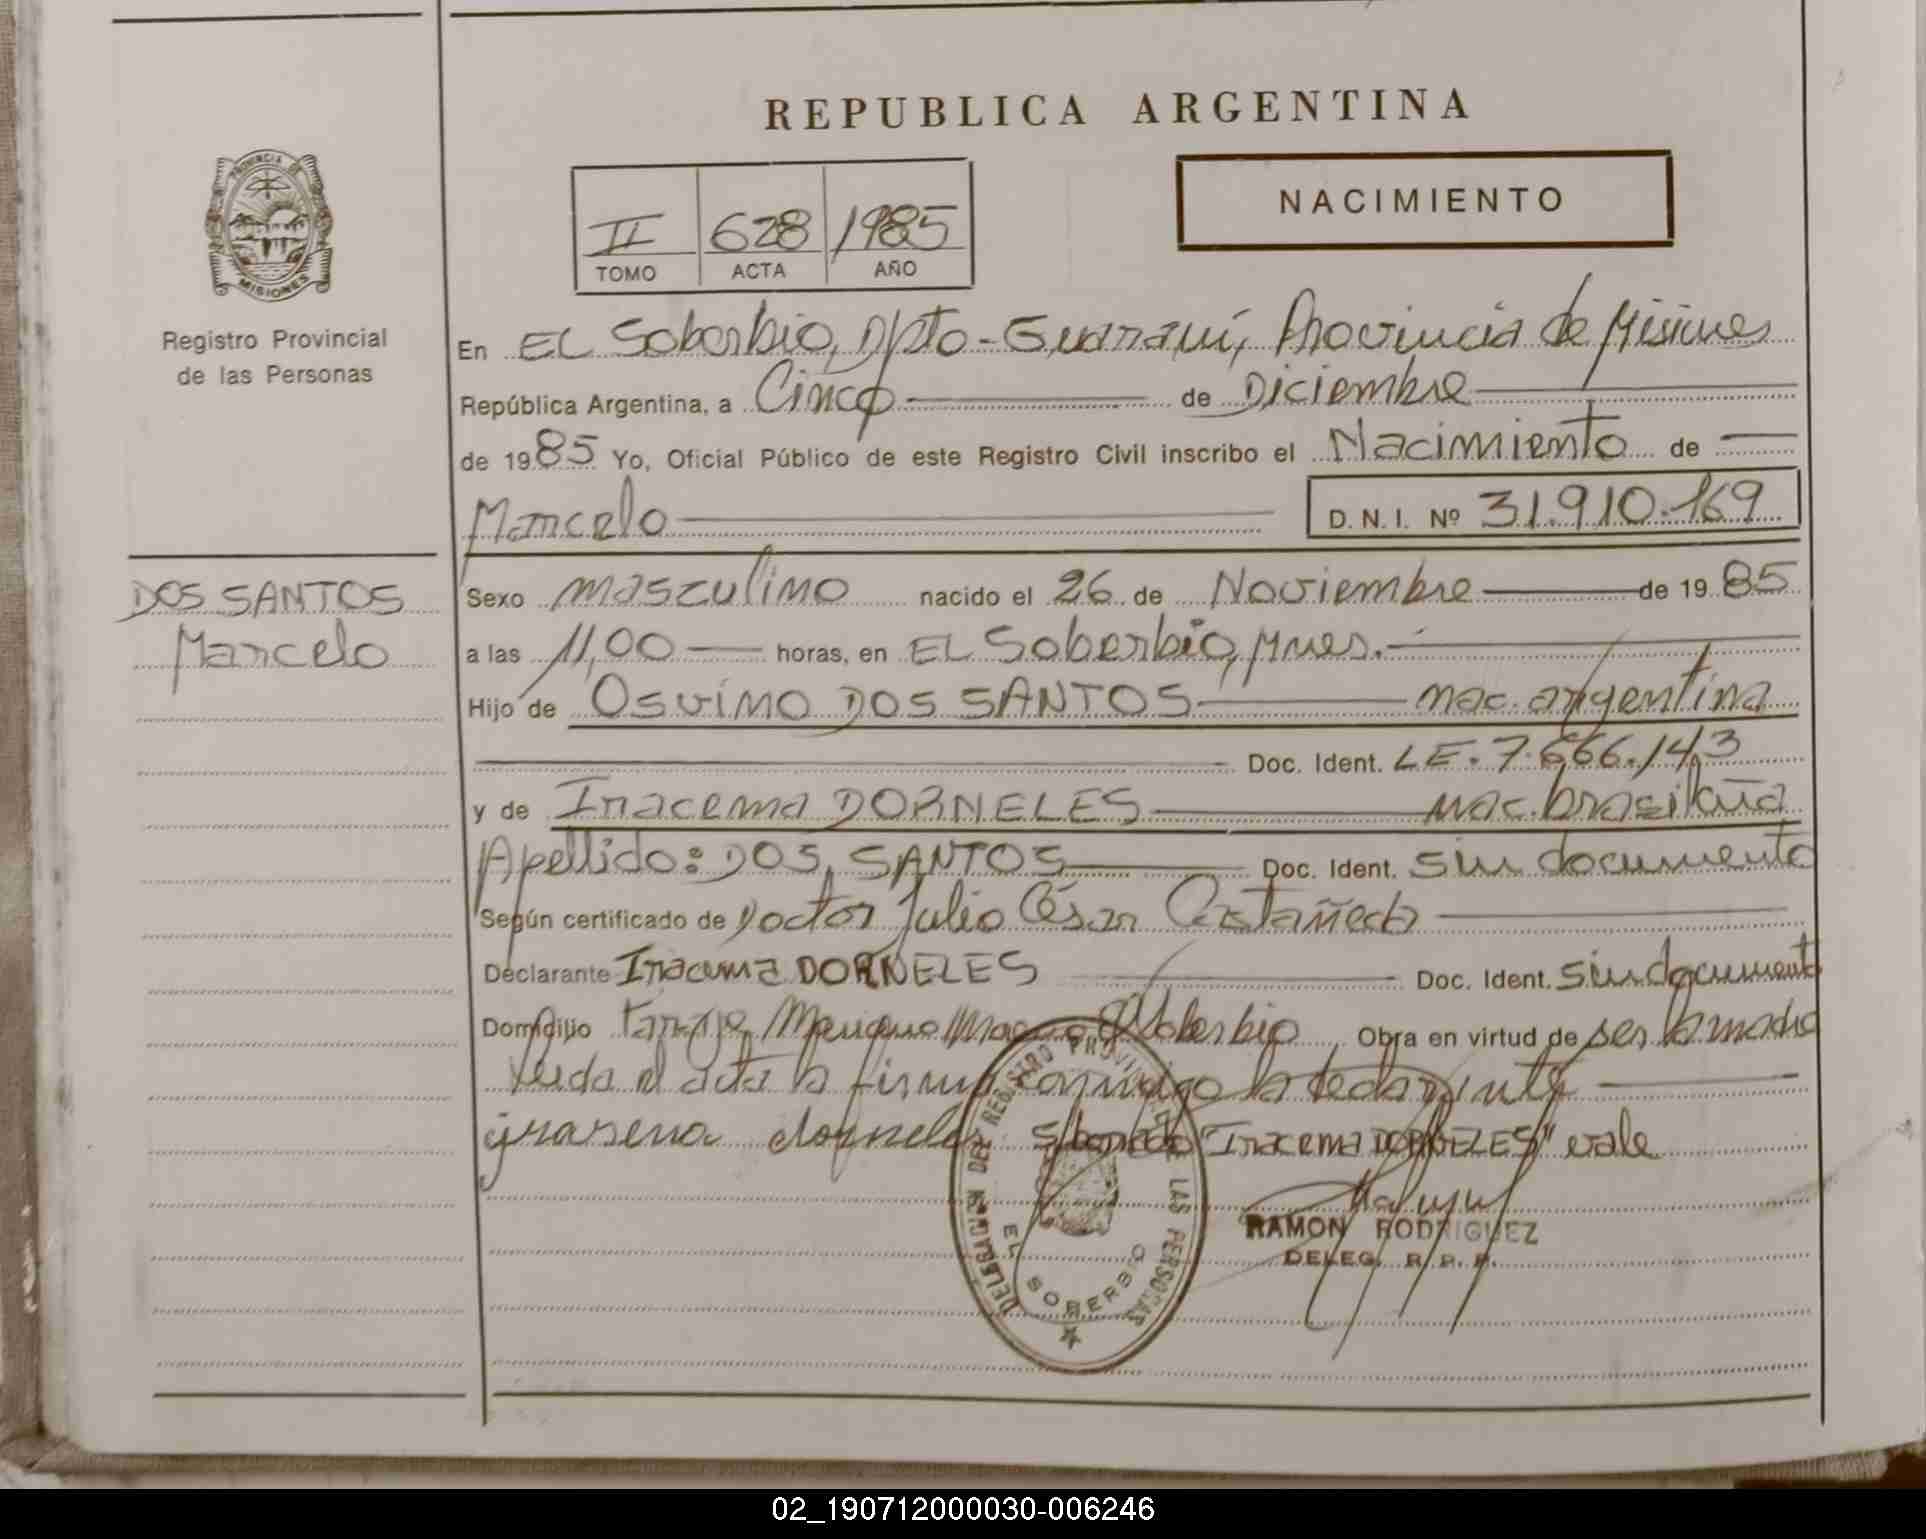 REPUBLICA ARGENTINA
PROVINCIA DE
MISIONES
Registro Provincial
de las Personas
II 628 1985
TOMO ACTA AÑO
NACIMIENTO
En EL Soberbio, Dpto-Guaraní, Provincia de Misiones
República Argentina, a Cinco de Diciembre
de 1985 Yo, Oficial Público de este Registro Civil inscribo el Nacimiento de
Marcelo D. N. I. Nº 31.910.169
DOS SANTOS
Marcelo
Sexo masculino nacido el 26 de Noviembre de 1985
a las 11,00 horas, en EL Soberbio, Mnes.
Hijo de Osvino DOS SANTOS nac. argentina
Doc. Ident. LE. 7.666.143
y de Iracema DORNELES nac. brasileña
Apellido: DOS SANTOS Doc. Ident. sin documento
Según certificado de Doctor Julio César Castañeda
Declarante Iracema DORNELES Doc. Ident. sin documento
Domicilio Paraje El Soberbio Obra en virtud de ser la madre
Leida el acta la firma conmigo la declarante
"Iracema DORNELES" vale
DELEGACION DEL REGISTRO PROVINCIAL DE LAS PERSONAS
EL SOBERBIO
RAMON RODRIGUEZ
DELEG. R. P. P.
02_190712000030-006246